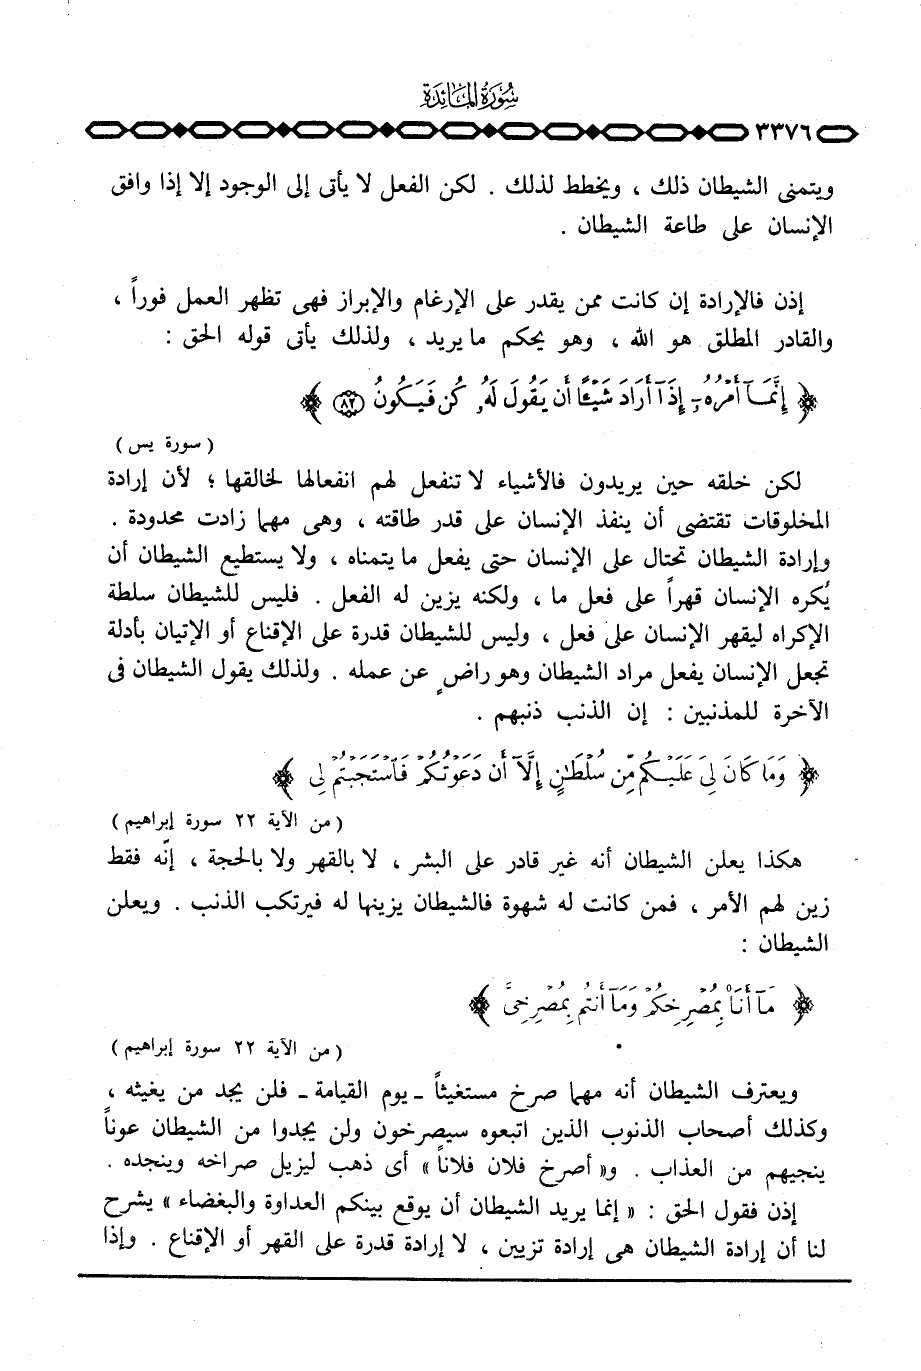 سُورَةُ المَائِدَةِ
٣٣٧٦
ويتمنى الشيطان ذلك ، ويخطط لذلك . لكن الفعل لا يأتى إلى الوجود إلا إذا وافق
الإنسان على طاعة الشيطان .
إذن فالإرادة إن كانت ممن يقدر على الإرغام والإبراز فهى تظهر العمل فوراً ،
والقادر المطلق هو الله ، وهو يحكم ما يريد ، ولذلك يأتى قوله الحق :
﴿ إِنَّمَآ أَمْرُهُۥٓ إِذَآ أَرَادَ شَيْـًٔا أَن يَقُولَ لَهُۥ كُن فَيَكُونُ ٨٢ ﴾
( سورة يس )
لكن خلقه حين يريدون فالأشياء لا تنفعل لهم انفعالها لخالقها ؛ لأن إرادة
المخلوقات تقتضى أن ينفذ الإنسان على قدر طاقته ، وهى مهما زادت محدودة .
وإرادة الشيطان تحتال على الإنسان حتى يفعل ما يتمناه ، ولا يستطيع الشيطان أن
يُكره الإنسان قهراً على فعل ما ، ولكنه يزين له الفعل . فليس للشيطان سلطة
الإكراه ليقهر الإنسان على فعل ، وليس للشيطان قدرة على الإقناع أو الإتيان بأدلة
تجعل الإنسان يفعل مراد الشيطان وهو راضٍ عن عمله . ولذلك يقول الشيطان فى
الآخرة للمذنبين : إن الذنب ذنبهم .
﴿ وَمَا كَانَ لِىَ عَلَيْكُم مِّن سُلْطَٰنٍ إِلَّآ أَن دَعَوْتُكُمْ فَٱسْتَجَبْتُمْ لِى ﴾
( من الآية ٢٢ سورة إبراهيم )
هكذا يعلن الشيطان أنه غير قادر على البشر ، لا بالقهر ولا بالحجة ، إنّه فقط
زين لهم الأمر ، فمن كانت له شهوة فالشيطان يزينها له فيرتكب الذنب . ويعلن
الشيطان :
﴿ مَّآ أَنَا۠ بِمُصْرِخِكُمْ وَمَآ أَنتُم بِمُصْرِخِىَّ ﴾
( من الآية ٢٢ سورة إبراهيم )
ويعترف الشيطان أنه مهما صرخ مستغيثاً ـ يوم القيامة ـ فلن يجد من يغيثه ،
وكذلك أصحاب الذنوب الذين اتبعوه سيصرخون ولن يجدوا من الشيطان عوناً
ينجيهم من العذاب . و« أصرخ فلان فلاناً » أى ذهب ليزيل صراخه وينجده .
إذن فقول الحق : « إنما يريد الشيطان أن يوقع بينكم العداوة والبغضاء » يشرح
لنا أن إرادة الشيطان هى إرادة تزيين ، لا إرادة قدرة على القهر أو الإقناع . وإذا